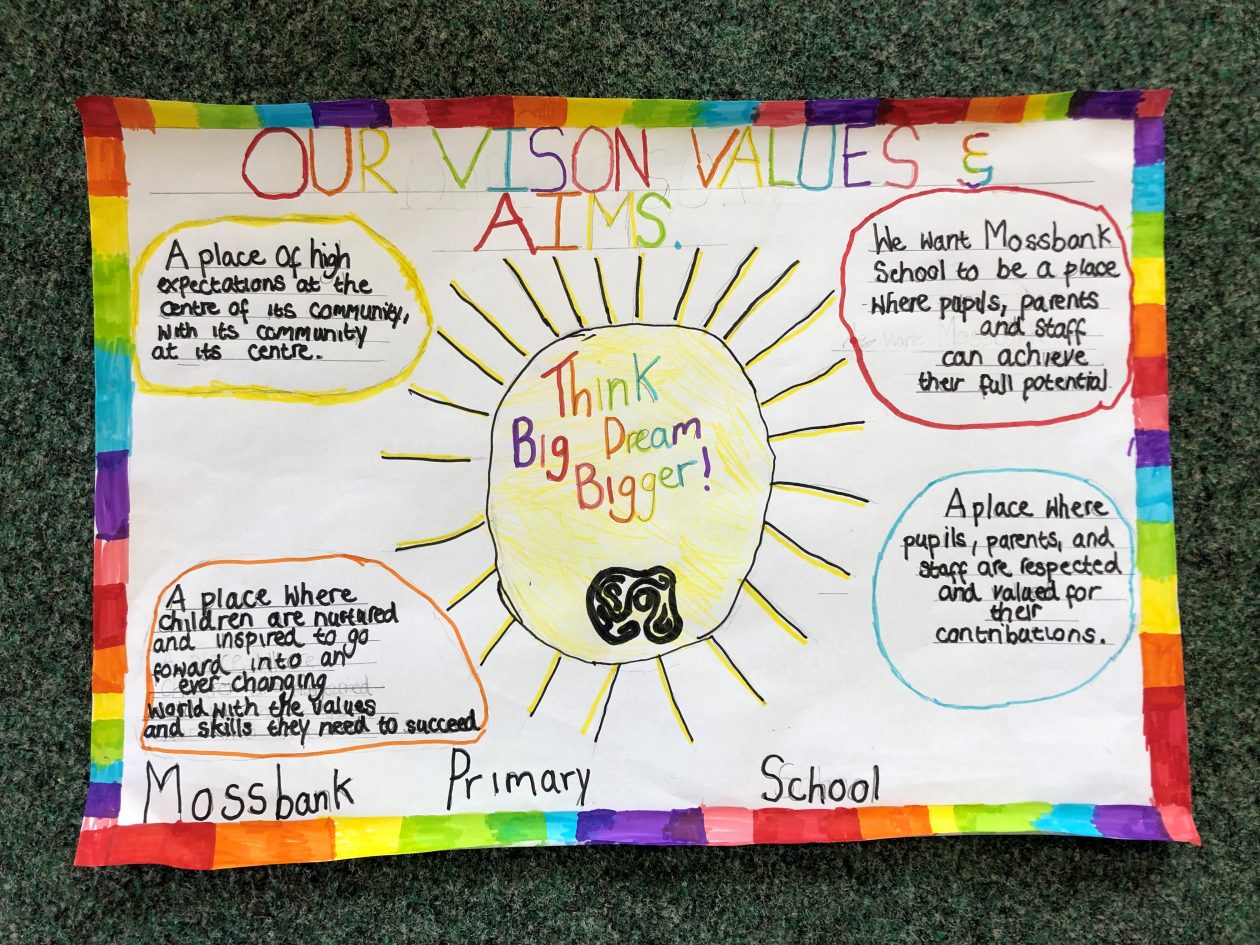 OUR VISON VALUES &
AIMS.
A place of high
expectations at the
centre of its community,
with its community
at its centre.
We want Mossbank
School to be a place
where pupils, parents
and staff
can achieve
their full potential
Think
Big Dream
Bigger!
A place where
children are nurtured
and inspired to go
foward into an
ever-changing
world with the values
and skills they need to succeed
A place where
pupils, parents, and
staff are respected
and valued for
their
contributions.
Mossbank Primary School